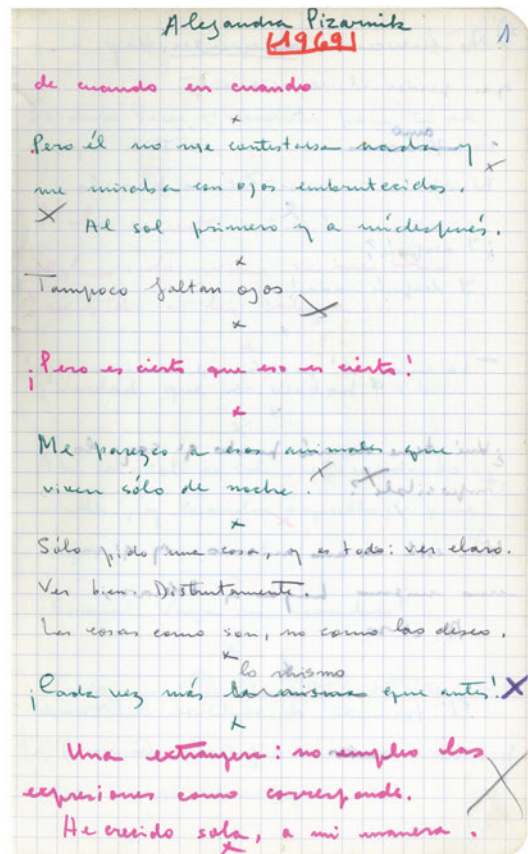 Alejandra Pizarnik
[1969]
1
de cuando en cuando
Pero él no me contestaba nada y
me miraba con ojos embrutecidos.
Al sol primero y a mí después.
Tampoco faltan ojos
¡Pero es cierto que eso es cierto!
Me parezco a esos animales que
viven sólo de noche.
Sólo pido una cosa, y es todo: ver claro.
Ver bien. Distintamente.
Las cosas como son, no como las deseo.
lo mismo
¡Cada vez más la misma que antes!
Una extranjera: no empleo las
expresiones como corresponde.
He crecido sola, a mi manera.